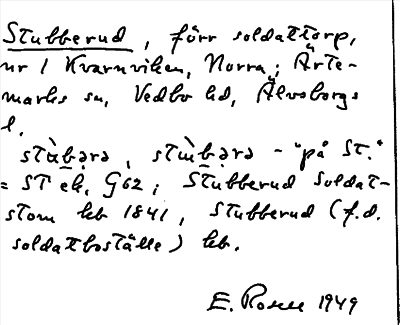 Stubberud, förr soldattorp,
nr 1 Kvarnviken, Norra; Ärte-
marks sn, Vedbo hd, Älvsborgs
l.
stùb̲ərə, stùb̲ərə - "på St."
= ST ek. G62; Stubberud Soldat-
stom hb 1841, Stubberud (f.d.
soldatboställe) hb.
E. Rosell 1949